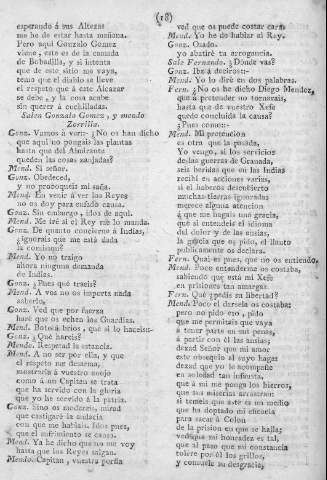 (18)
esperando á sus Altezas
me he de estar hasta mañana.
Pero aquí Gonzalo Gomez
viene, este es de la camada
de Bobadilla, y si intenta
que de este sitio me vaya,
temo que el diablo se lleve
el respeto á este Alcazar
se debe, y la cosa acabe
sin querer á cuchilladas.
Salen Gonzalo Gomez, y mondo
Zorrilla.
Gonz. Vamos á ver:- ¿No os han dicho
que aquí no pongais las plantas
hasta que del Almirante
queden las cosas zanjadas?
Mend. Sí señor.
Gonz. Obedeced,
y no provoqueis mi saña.
Mend. En venir á ver los Reyes
no os doy para enfado causa.
Gonz. Sin embargo, idos de aquí.
Mend. Me iré si el Rey me lo manda.
Gonz. De quanto concierne á Indias,
¿ignorais que me está dada
la comision?
Mend. Yo no traigo
ahora ninguna demanda
de Indias.
Gonz. ¿Pues qué traeis?
Mend. A vos no os importa nada
saberlo.
Gonz. Ved que por fuerza
haré que os echen los Guardias.
Mend. Botoá brios, que si lo haceis:-
Gonz. ¿Qué hareis?
Mend. Respetad la estancia.
Mend. A no ser por ella, y que
el respeto me desarma,
mostraria á vuestro enojo
como á un Capitan se trata
que ha servido con la gloria
que yo he servido á la patria.
Gonz. Sino os moderais, mirad
que castigaré la audacia
con que me hablais. Idos pues,
que el sufrimiento se cansa.
Mend. Ya he dicho que no me voy
hasta que los Reyes salgan.
Mend. Capitan, vuestra porfia
ved que os puede costar cara.
Mend. Yo he de hablar al Rey.
Gonz. Osado.
yo abatiré tu arrogancia.
Sale Fernando. ¿Donde vas?
Gonz. Iba á deciros:-
Mend. Yo lo diré en dos palabras.
Fern. ¿No os he dicho Diego Mendez,
que á pretender no tornarais,
hasta que de vuestro Xefe
quede concluida la causa?
¿Pues cómo:-
Mend. Mi pretension
es otra que la pasada.
Yo vengo, si los servicios
de las guerras de Granada,
seis heridas que en las Indias
recibí en acciones varias,
si el haberos descubierto
muchas tierras ignoradas
merece alguna atencion
á que me hagais una gracia,
que si entendeis el idioma
del dolor y de las ansias,
la gracia que os pido, el llanto
publicamente os declara.
Fern. Qual es pues, que no os entiendo,
Mend. Poco entenderme os costaba,
sabiendo que está mi Xefe
en prisiones tan amargas.
Fern. Qué ¿pedís su libertad?
Mend. Poco el darsela os costaba;
pero no pido eso, pido
que me permitais que vaya
á tener parte en sus penas,
á partir con él las ansias;
dexad Señor que mi amor
este obsequio al suyo haga:
dexad que yo le acompañe
en soledad tan infausta,
que á mí me ponga los hierros,
que sus miserias arrastran:
si temeis que este es un medio
que ha adoptado mi eficacia
para sacar á Colon
de la prision en que se halla;
vedlique mi honradez es tal,
que al paso que mi constancia
tolere por él los grillos,
y consuele su desgracia,